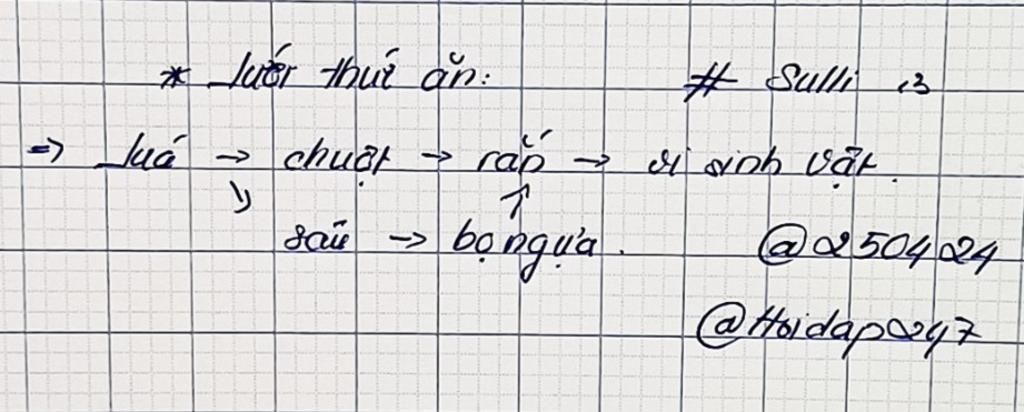 * Lưới thức ăn: # Sulli :3
=> Lúa → chuột → rắn → vi sinh vật.
↘ ↑
sâu → bọ ngựa. @250424
@Hoidap247